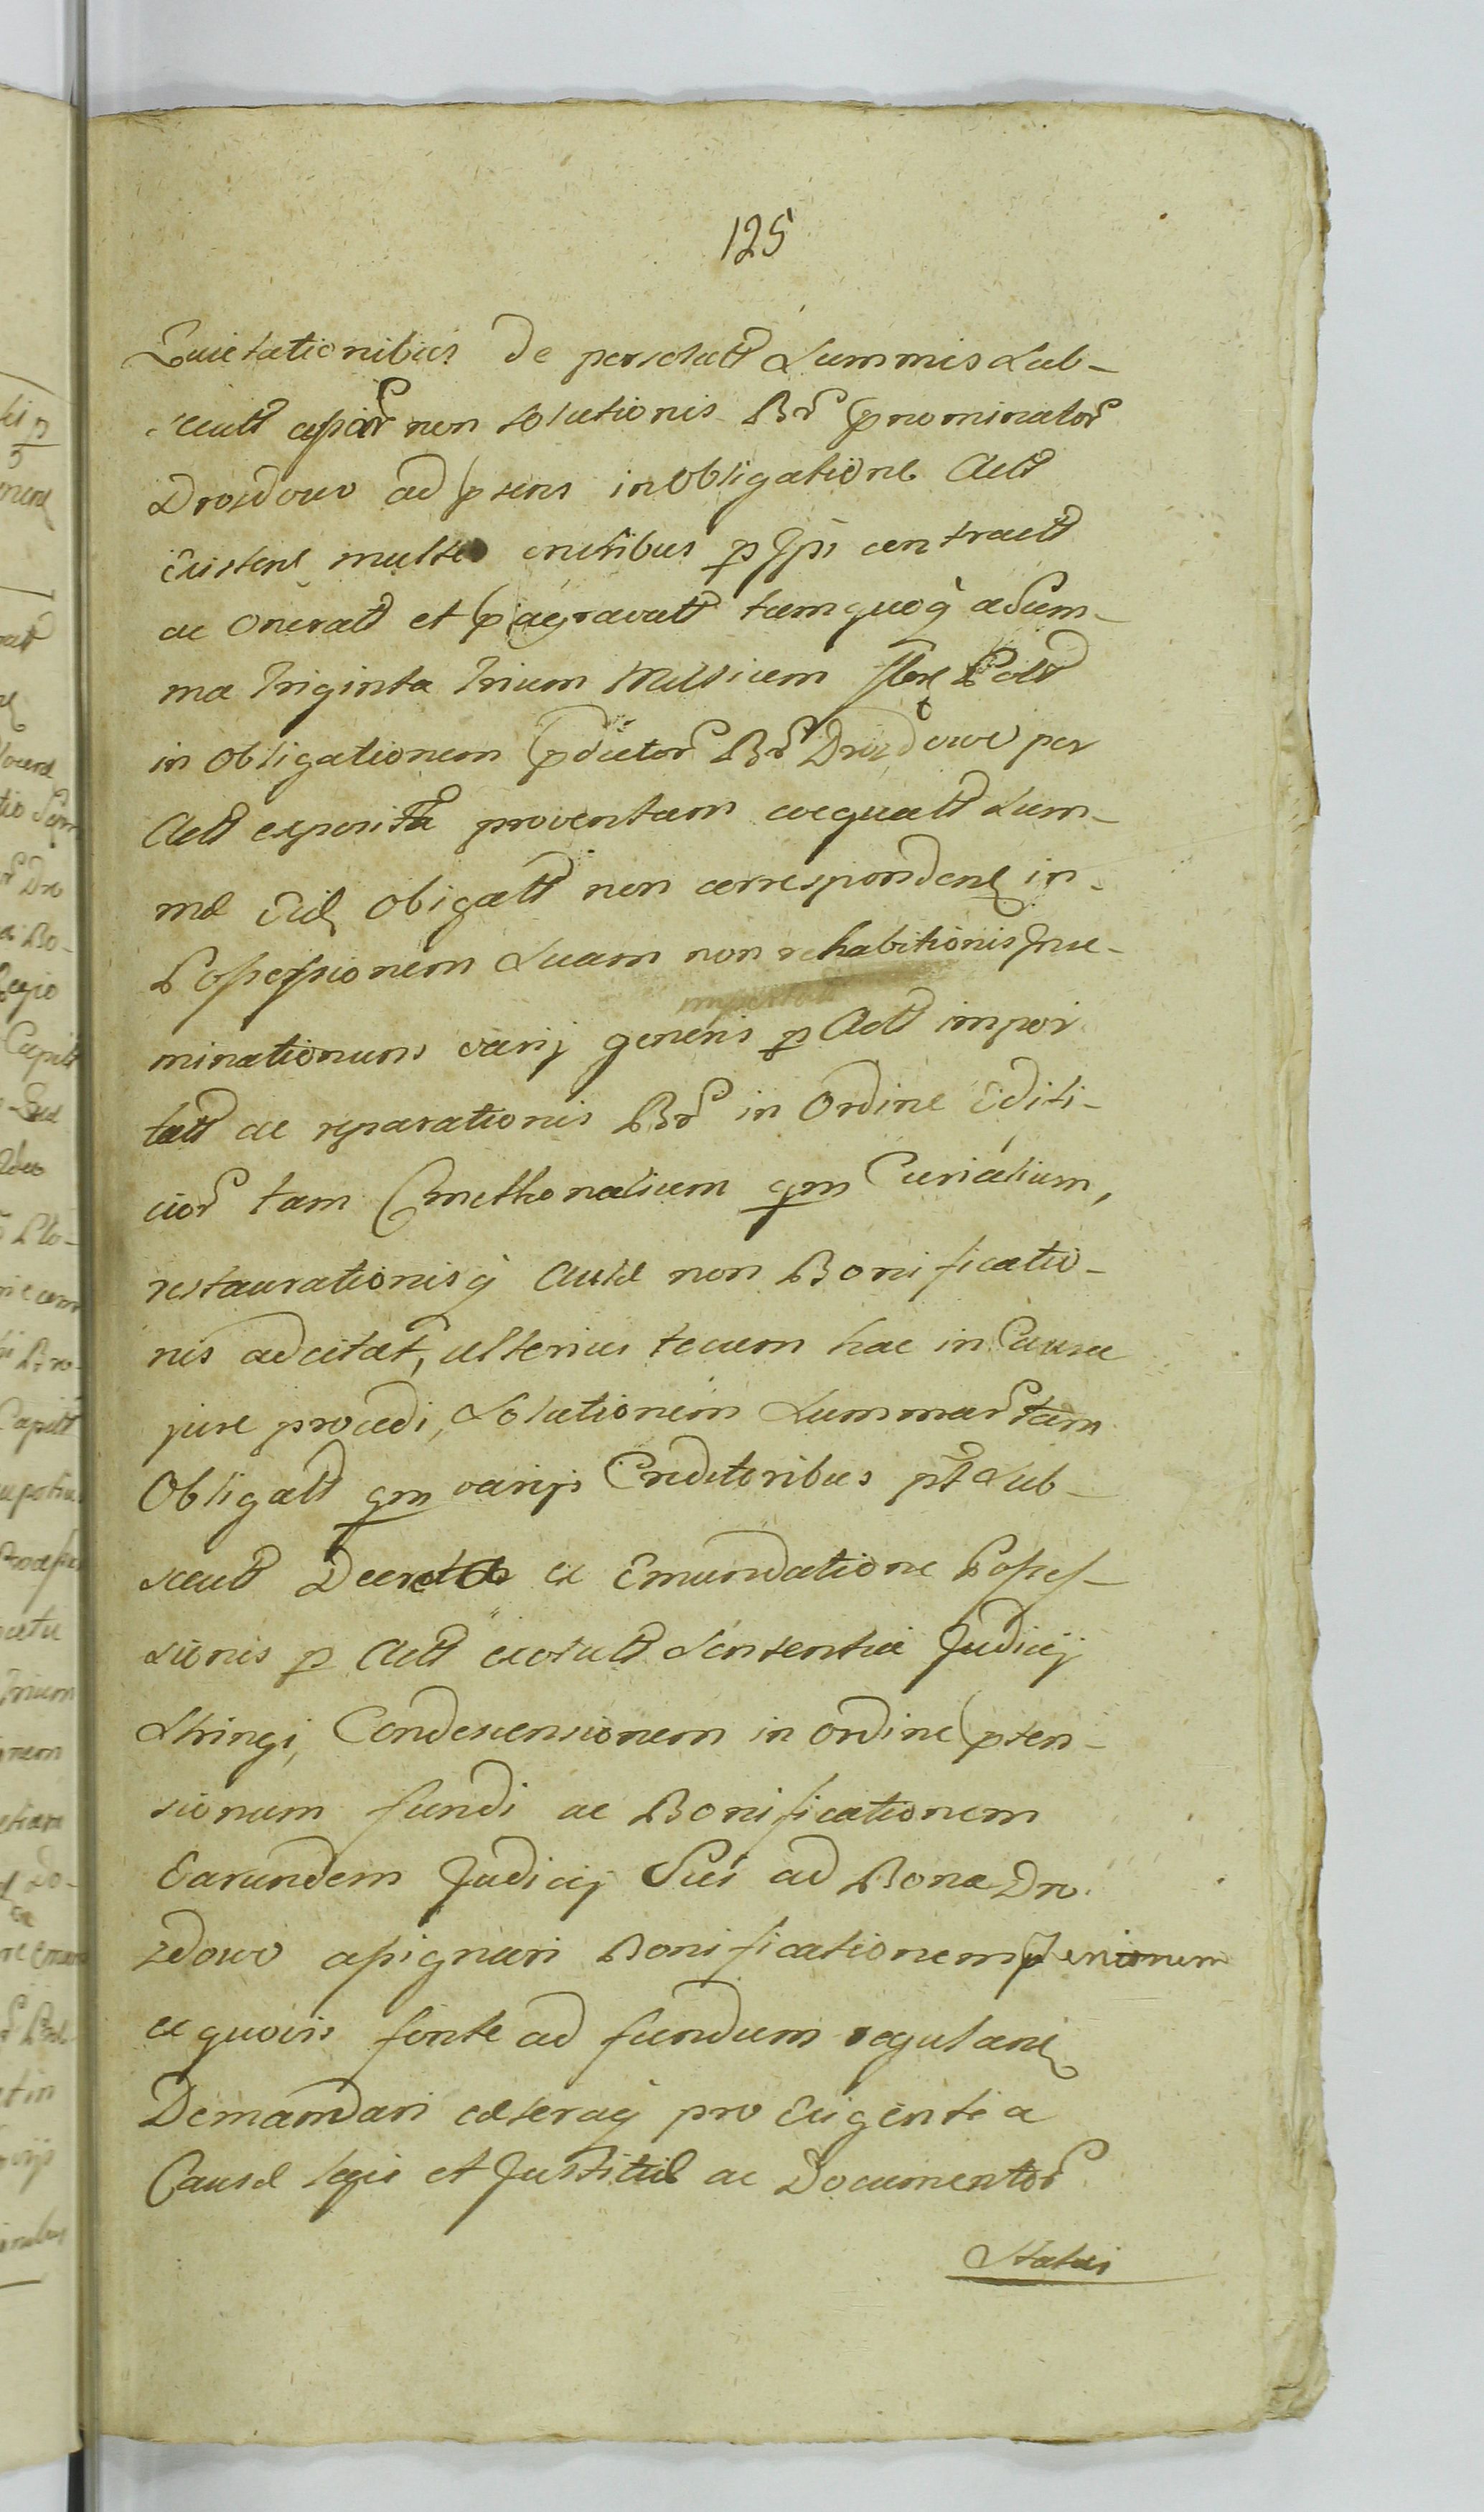 125
Quietationibus de persolutt Summis Sub-
secutt non Solutionis Br̃ p̃nominatr̃
Drozdowo ad p̃sens in Obligatione Actt
Existen multo oneribus p Ipsi contractt
ac Oneratt et p̃agravatt tamquoq̃ ad Sum-
ma Triginta Trium Millium flen Poltt
in Obligationem p̃dictor̃ Br̃ Drozdowo per
Actt exposita proventum coequatt Sum-
mæ Eid obligatt non corresponden in
Possessionem Suam non rehabitionis Inue-
minationum varij generis p Actt impor
tatt ac reparationis Br̃ in Ordine Edifi-
cior̃ tam Cmethonalium qm Curialium,
restaurationisq̃ Aulæ non Bonificatio-
nis adcitat, ulterius tecum hac in Causa
jure procedi, Solutionem Summar̃ tam
Obligatt qm varijs Creditoribus pt Sub-
secutt Decreto ex Emundatione Posses-
sionis p Actt exolutt Sententia Judicij
Stringi, Condescensionem in ordine p̃ten-
sionum fundi ac Bonificationem
Earundem Judicij Sui ad Bona Dro.
zdowo assignari Bonificationem p̃tensionum
ex quovis fonte ad fundum regulari
Demandari cæteraq̃ pro Exigentia
Causæ legis et Justitiæ ac Documentor̃
Statui